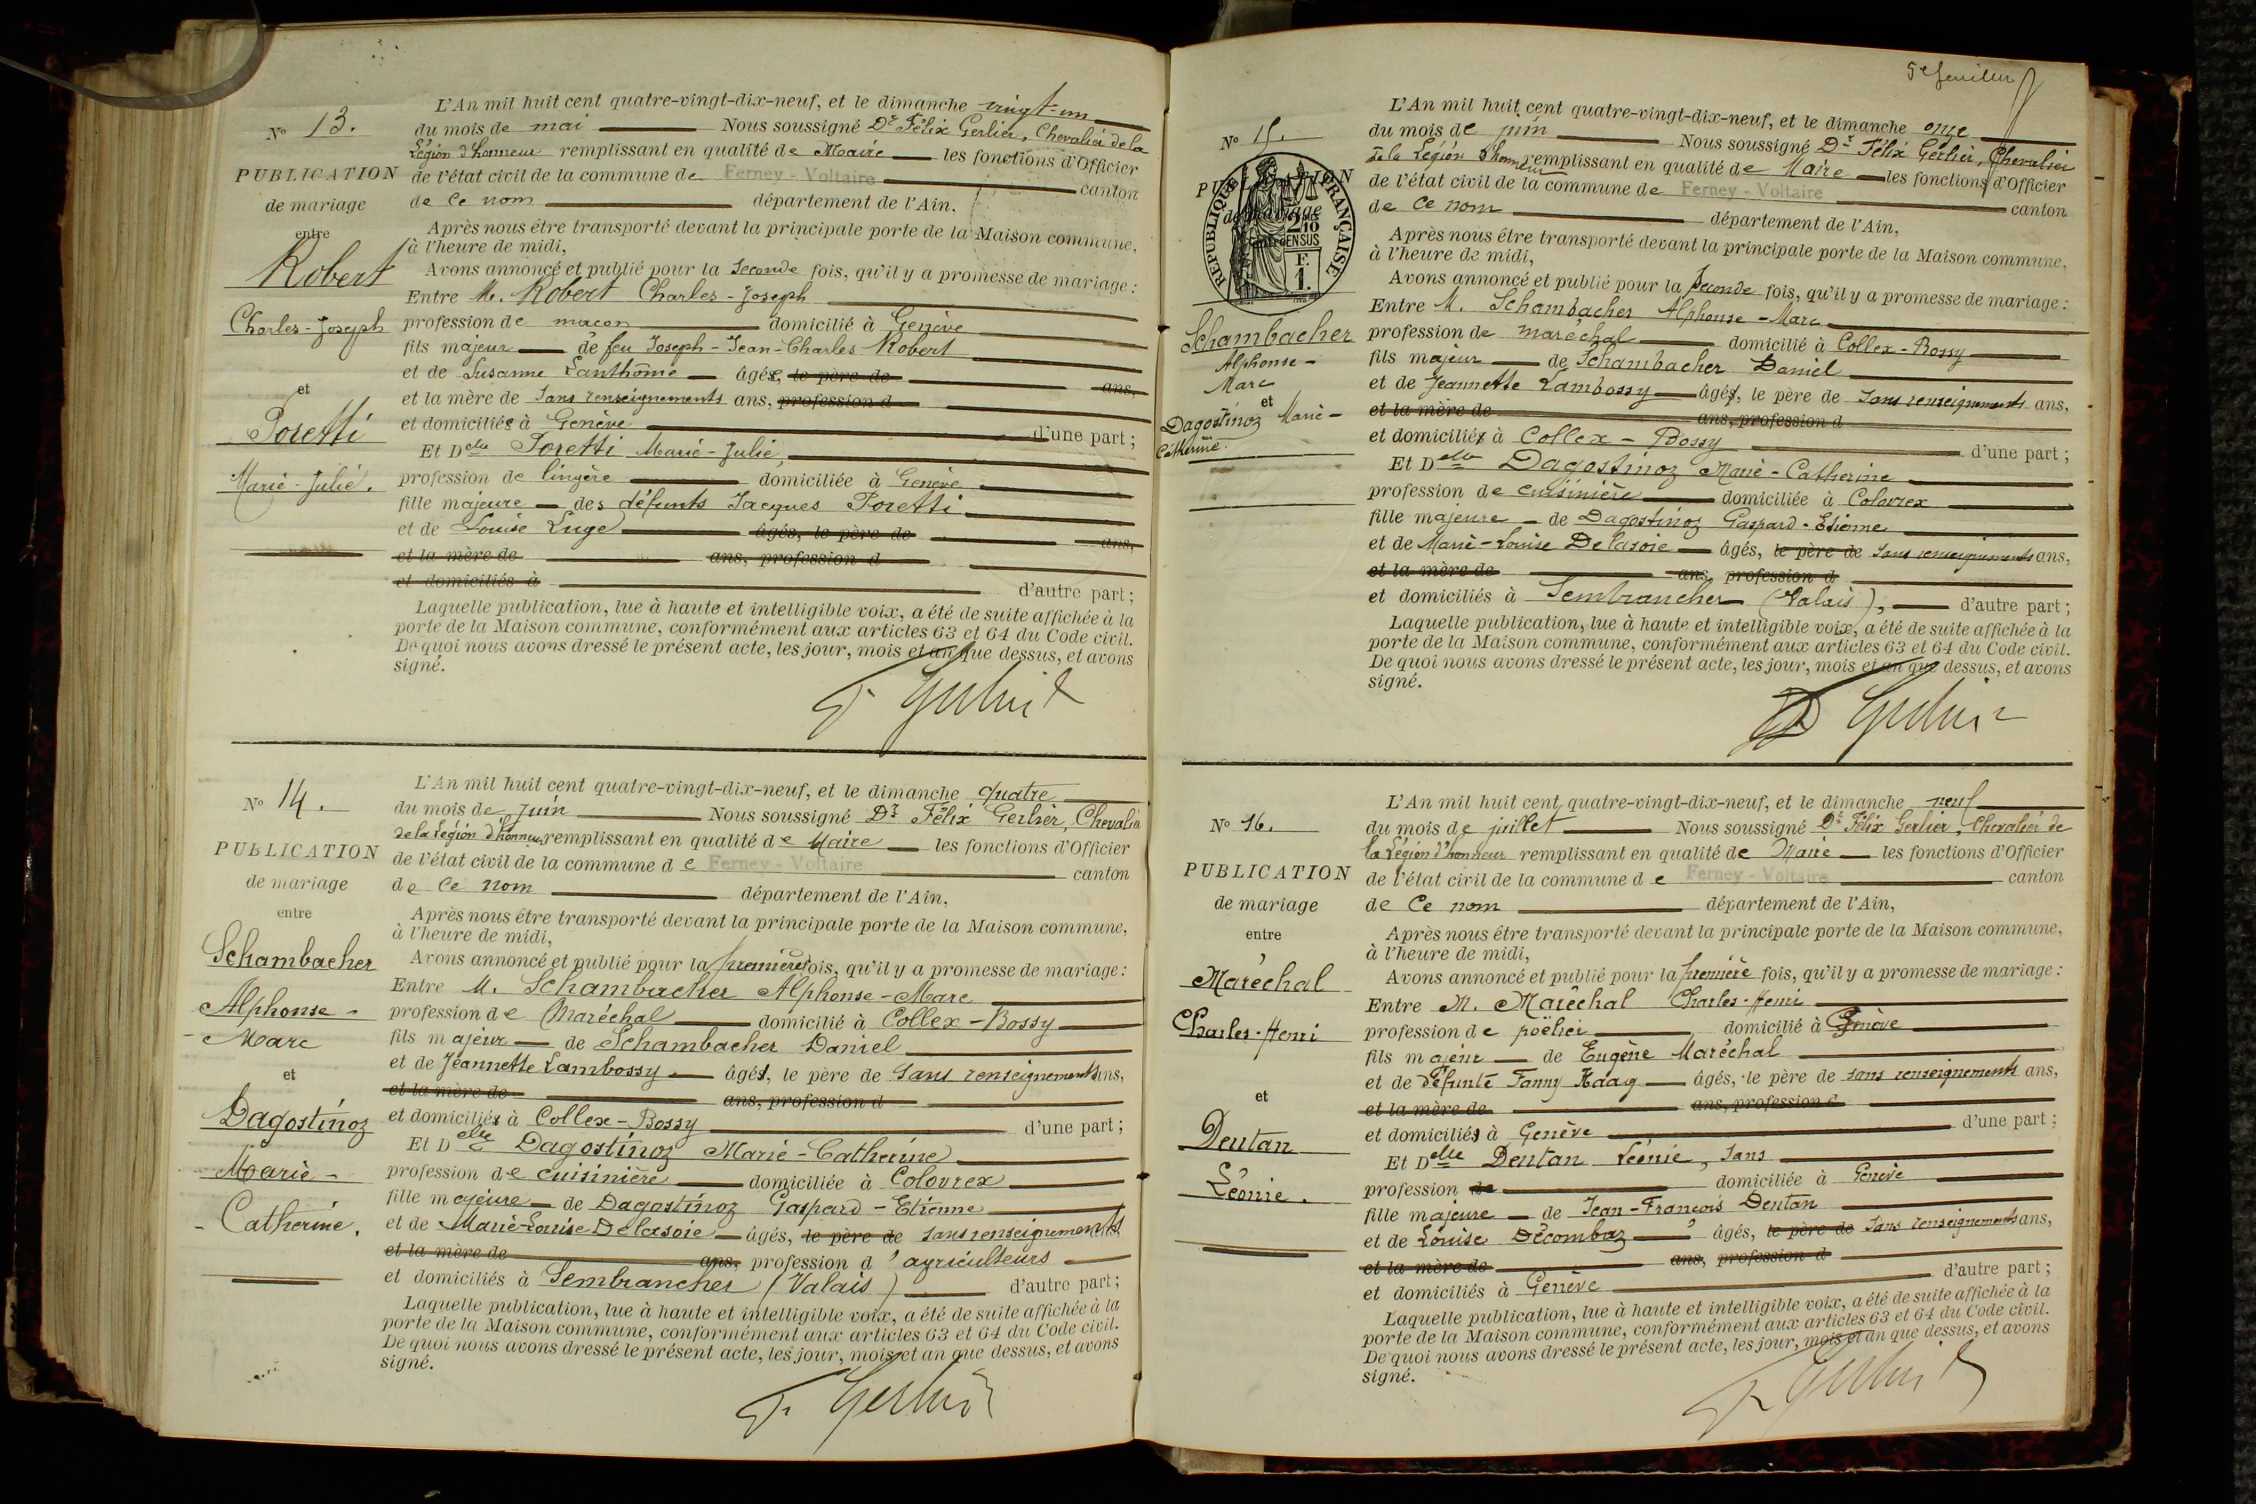 L'An mil huit cent quatre-vingt-dix-neuf, et le dimanche vingt-un
No 13.
du mois de mai Nous soussigné Dr Félix Gerlier, Chevalier de la
Légion d'honneur remplissant en qualité de Maire les fonctions d'Officier
PUBLICATION
de l'état civil de la commune de Ferney - Voltaire canton
de mariage
de ce nom département de l'Ain,
entre
Après nous être transporté devant la principale porte de la Maison commune,
à l'heure de midi,
Robert
Avons annoncé et publié pour la seconde fois, qu'il y a promesse de mariage :
Entre M. Robert Charles-Joseph
Charles-Joseph
profession de maçon domicilié à Genève
fils majeur de feu Joseph-Jean-Charles Robert
et de Susanne Lanthôme âgée, le père de ans,
et
et la mère de sans renseignements ans, profession d
Poretti
et domiciliés à Genève d'une part ;
Et Delle Poretti Marie-Julie
Marie-Julie.
profession de lingère domiciliée à Genève
fille majeure des défunts Jacques Poretti
et de Louise Luge âgés, le père de ans,
et la mère de ans, profession d
et domiciliés à d'autre part ;
Laquelle publication, lue à haute et intelligible voix, a été de suite affichée à la
porte de la Maison commune, conformément aux articles 63 et 64 du Code civil.
De quoi nous avons dressé le présent acte, les jour, mois et an que dessus, et avons
signé.
L'An mil huit cent quatre-vingt-dix-neuf, et le dimanche quatre
No 14.
du mois de juin Nous soussigné Dr Félix Gerlier, Chevalier
de la Légion d'honneur remplissant en qualité de Maire les fonctions d'Officier
PUBLICATION
de l'état civil de la commune de Ferney - Voltaire canton
de mariage
de ce nom département de l'Ain,
entre
Après nous être transporté devant la principale porte de la Maison commune,
à l'heure de midi,
Schambacher
Avons annoncé et publié pour la première fois, qu'il y a promesse de mariage :
Entre M. Schambacher Alphonse-Marc
Alphonse-
profession de Maréchal domicilié à Collex-Bossy
Marc
fils majeur de Schambacher Daniel
et de Jeannette Lambossy âgés, le père de sans renseignements ans,
et
et la mère de ans, profession d
Dagostinoz
et domiciliés à Collex-Bossy d'une part ;
Et Delle Dagostinoz Marie-Catherine
Marie-
profession de cuisinière domiciliée à Colovrex
fille majeure de Dagostinoz Gaspard-Etienne
Catherine.
et de Marie-Louise Delasoie âgés, le père de sans renseignements ans,
et la mère de ans, profession d'agriculteurs
et domiciliés à Sembrancher (Valais) d'autre part ;
Laquelle publication, lue à haute et intelligible voix, a été de suite affichée à la
porte de la Maison commune, conformément aux articles 63 et 64 du Code civil.
De quoi nous avons dressé le présent acte, les jour, mois et an que dessus, et avons
signé.
F. Gerlier
5e feuillet
L'An mil huit cent quatre-vingt-dix-neuf, et le dimanche onze
No 15.
du mois de juin Nous soussigné Dr Félix Gerlier, Chevalier
de la Légion d'honneur remplissant en qualité de Maire les fonctions d'Officier
PUBLICATION
RÉPUBLIQUE FRANÇAISE
de l'état civil de la commune de Ferney - Voltaire canton
de mariage
2/10
EN SUS
F.
1.
de ce nom département de l'Ain,
Après nous être transporté devant la principale porte de la Maison commune,
à l'heure de midi,
Avons annoncé et publié pour la seconde fois, qu'il y a promesse de mariage :
Entre M. Schambacher Alphonse-Marc
Schambacher
profession de maréchal domicilié à Collex-Bossy
Alphonse-
Marc
fils majeur de Schambacher Daniel
et de Jeannette Lambossy âgés, le père de sans renseignements ans,
et
Dagostinoz Marie-
Catherine.
et la mère de ans, profession d
et domiciliés à Collex-Bossy d'une part ;
Et Delle Dagostinoz Marie-Catherine
profession de cuisinière domiciliée à Colovrex
fille majeure de Dagostinoz Gaspard-Etienne
et de Marie-Louise Delasoie âgés, le père de sans renseignements ans,
et la mère de ans, profession d
et domiciliés à Sembrancher (Valais), d'autre part ;
Laquelle publication, lue à haute et intelligible voix, a été de suite affichée à la
porte de la Maison commune, conformément aux articles 63 et 64 du Code civil.
De quoi nous avons dressé le présent acte, les jour, mois et an que dessus, et avons
signé.
L'An mil huit cent quatre-vingt-dix-neuf, et le dimanche neuf
No 16.
du mois de juillet Nous soussigné Dr Félix Gerlier, Chevalier de
la Légion d'honneur remplissant en qualité de Maire les fonctions d'Officier
PUBLICATION
de l'état civil de la commune de Ferney - Voltaire canton
de mariage
de ce nom département de l'Ain,
entre
Après nous être transporté devant la principale porte de la Maison commune,
à l'heure de midi,
Maréchal
Avons annoncé et publié pour la première fois, qu'il y a promesse de mariage :
Entre M. Maréchal Charles-Henri
Charles-Henri
profession de poëlier domicilié à Genève
fils majeur de Eugène Maréchal
et de défunte Fanny Haag âgés, le père de sans renseignements ans,
et
et la mère de ans, profession d
et domiciliés à Genève d'une part ;
Dentan
Et Delle Dentan Léonie, sans
Léonie.
profession de domiciliée à Genève
fille majeure de Jean-François Dentan
et de Louise Décombaz âgés, le père de sans renseignements ans,
et la mère de ans, profession d
et domiciliés à Genève d'autre part ;
Laquelle publication, lue à haute et intelligible voix, a été de suite affichée à la
porte de la Maison commune, conformément aux articles 63 et 64 du Code civil.
De quoi nous avons dressé le présent acte, les jour, mois et an que dessus, et avons
signé.